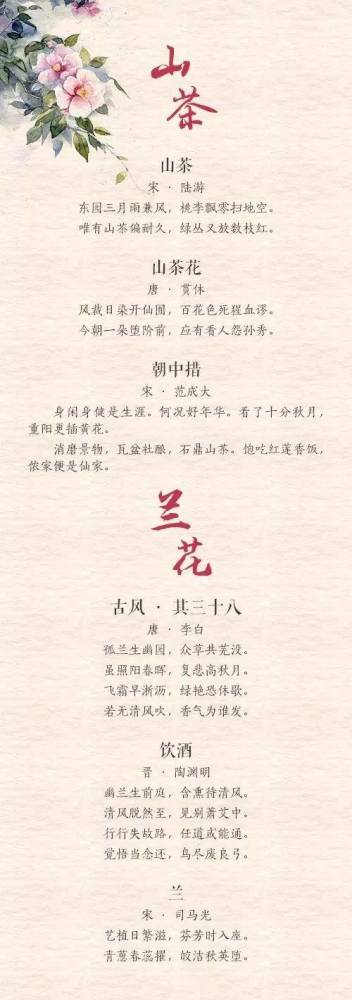 山
茶
山茶
宋 · 陆游
东园三月雨兼风，桃李飘零扫地空。
唯有山茶偏耐久，绿丛又放数枝红。
山茶花
唐 · 贯休
风裁日染开仙囿，百花色死猩血谬。
今朝一朵堕阶前，应有看人怨孙秀。
朝中措
宋 · 范成大
身闲身健是生涯。何况好年华。看了十分秋月，
重阳更插黄花。
消磨景物，瓦盆社酿，石鼎山茶。饱吃红莲香饭，
侬家便是仙家。
兰
花
古风 · 其三十八
唐 · 李白
孤兰生幽园，众草共芜没。
虽照阳春晖，复悲高秋月。
飞霜早淅沥，绿艳恐休歇。
若无清风吹，香气为谁发。
饮酒
晋 · 陶渊明
幽兰生前庭，含熏待清风。
清风脱然至，见别萧艾中。
行行失故路，任道或能通。
觉悟当念还，鸟尽废良弓。
兰
宋 · 司马光
艺植日繁滋，芬芳时入座。
青葱春蕊擢，皎洁秋英堕。